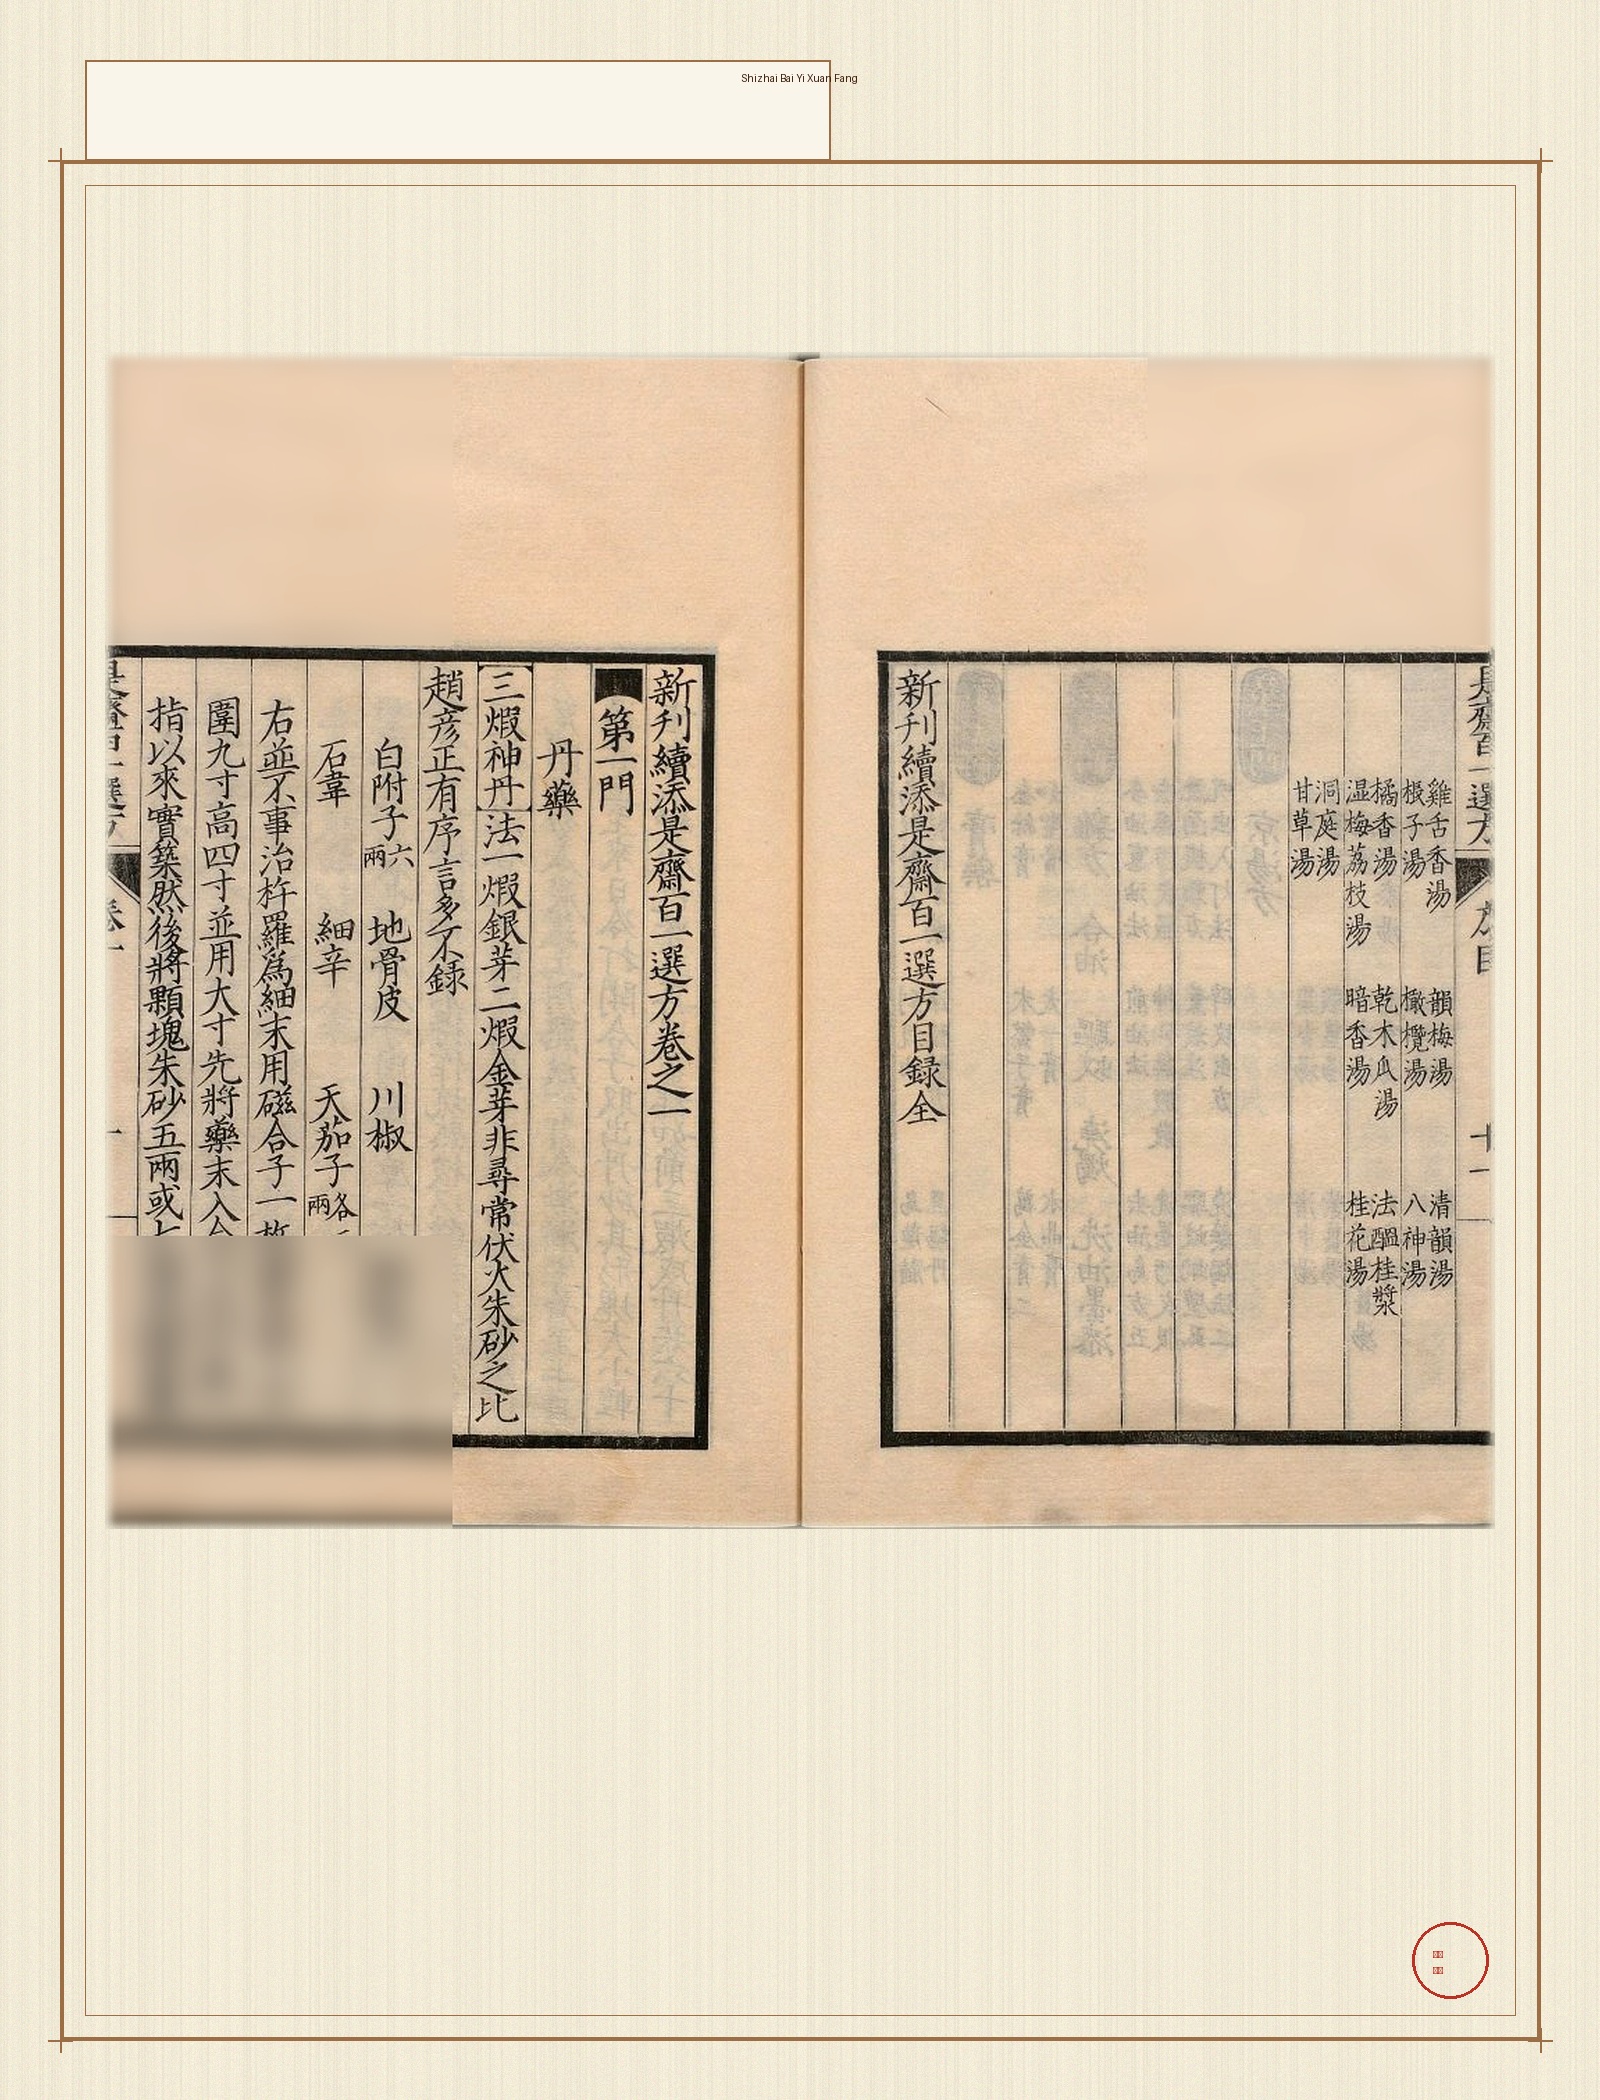 Shizhai Bai Yi Xuan Fang
是齋百一選方
方目
十一
雞舌香湯 韻梅湯 清韻湯
根子湯 橄欖湯 八神湯
橘香湯 乾木瓜湯 法醞桂漿
湿梅荔枝湯 暗香湯 桂花湯
洞庭湯
甘草湯
新刋續添是齋百一選方目録全
新刋續添是齋百一選方卷之一
第一門
丹藥
三煆神丹法一煆銀芽二煆金芽非尋常伏火朱砂之比
趙彦正有序言多不録
白附子六兩 地骨皮 川椒
石韋 細辛 天茄子各兩
右並不事治杵羅爲細末用磁合子一
圍九寸高四寸並用大寸先將藥末入
指以來實築然後將顆塊朱砂五兩或
是齋百一選方
卷一
一